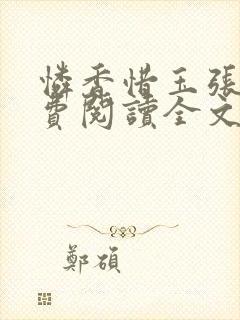 憐香惜玉張
費閱讀全文
鄭碩